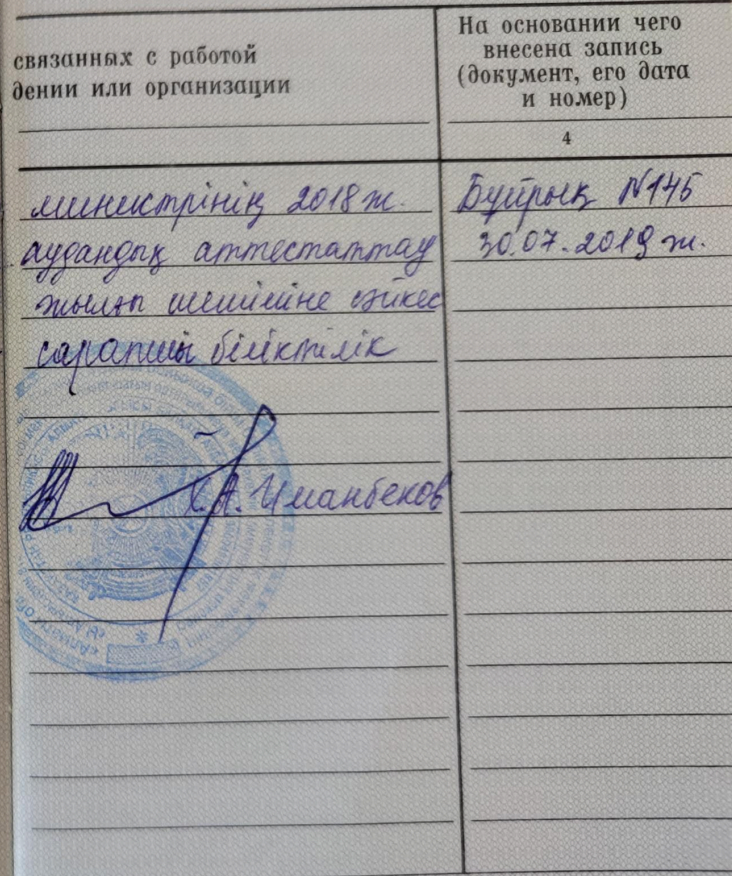 связанных с работой
дении или организации
На основании чего
внесена запись
(документ, его дата
и номер)
4
министрінің 2018 ж.
аудандық аттестаттау
шешіміне сәйкес
сарапшы біліктілік
Х.А. Иманбеков
Бұйрық N145
30.07.2019 ж.